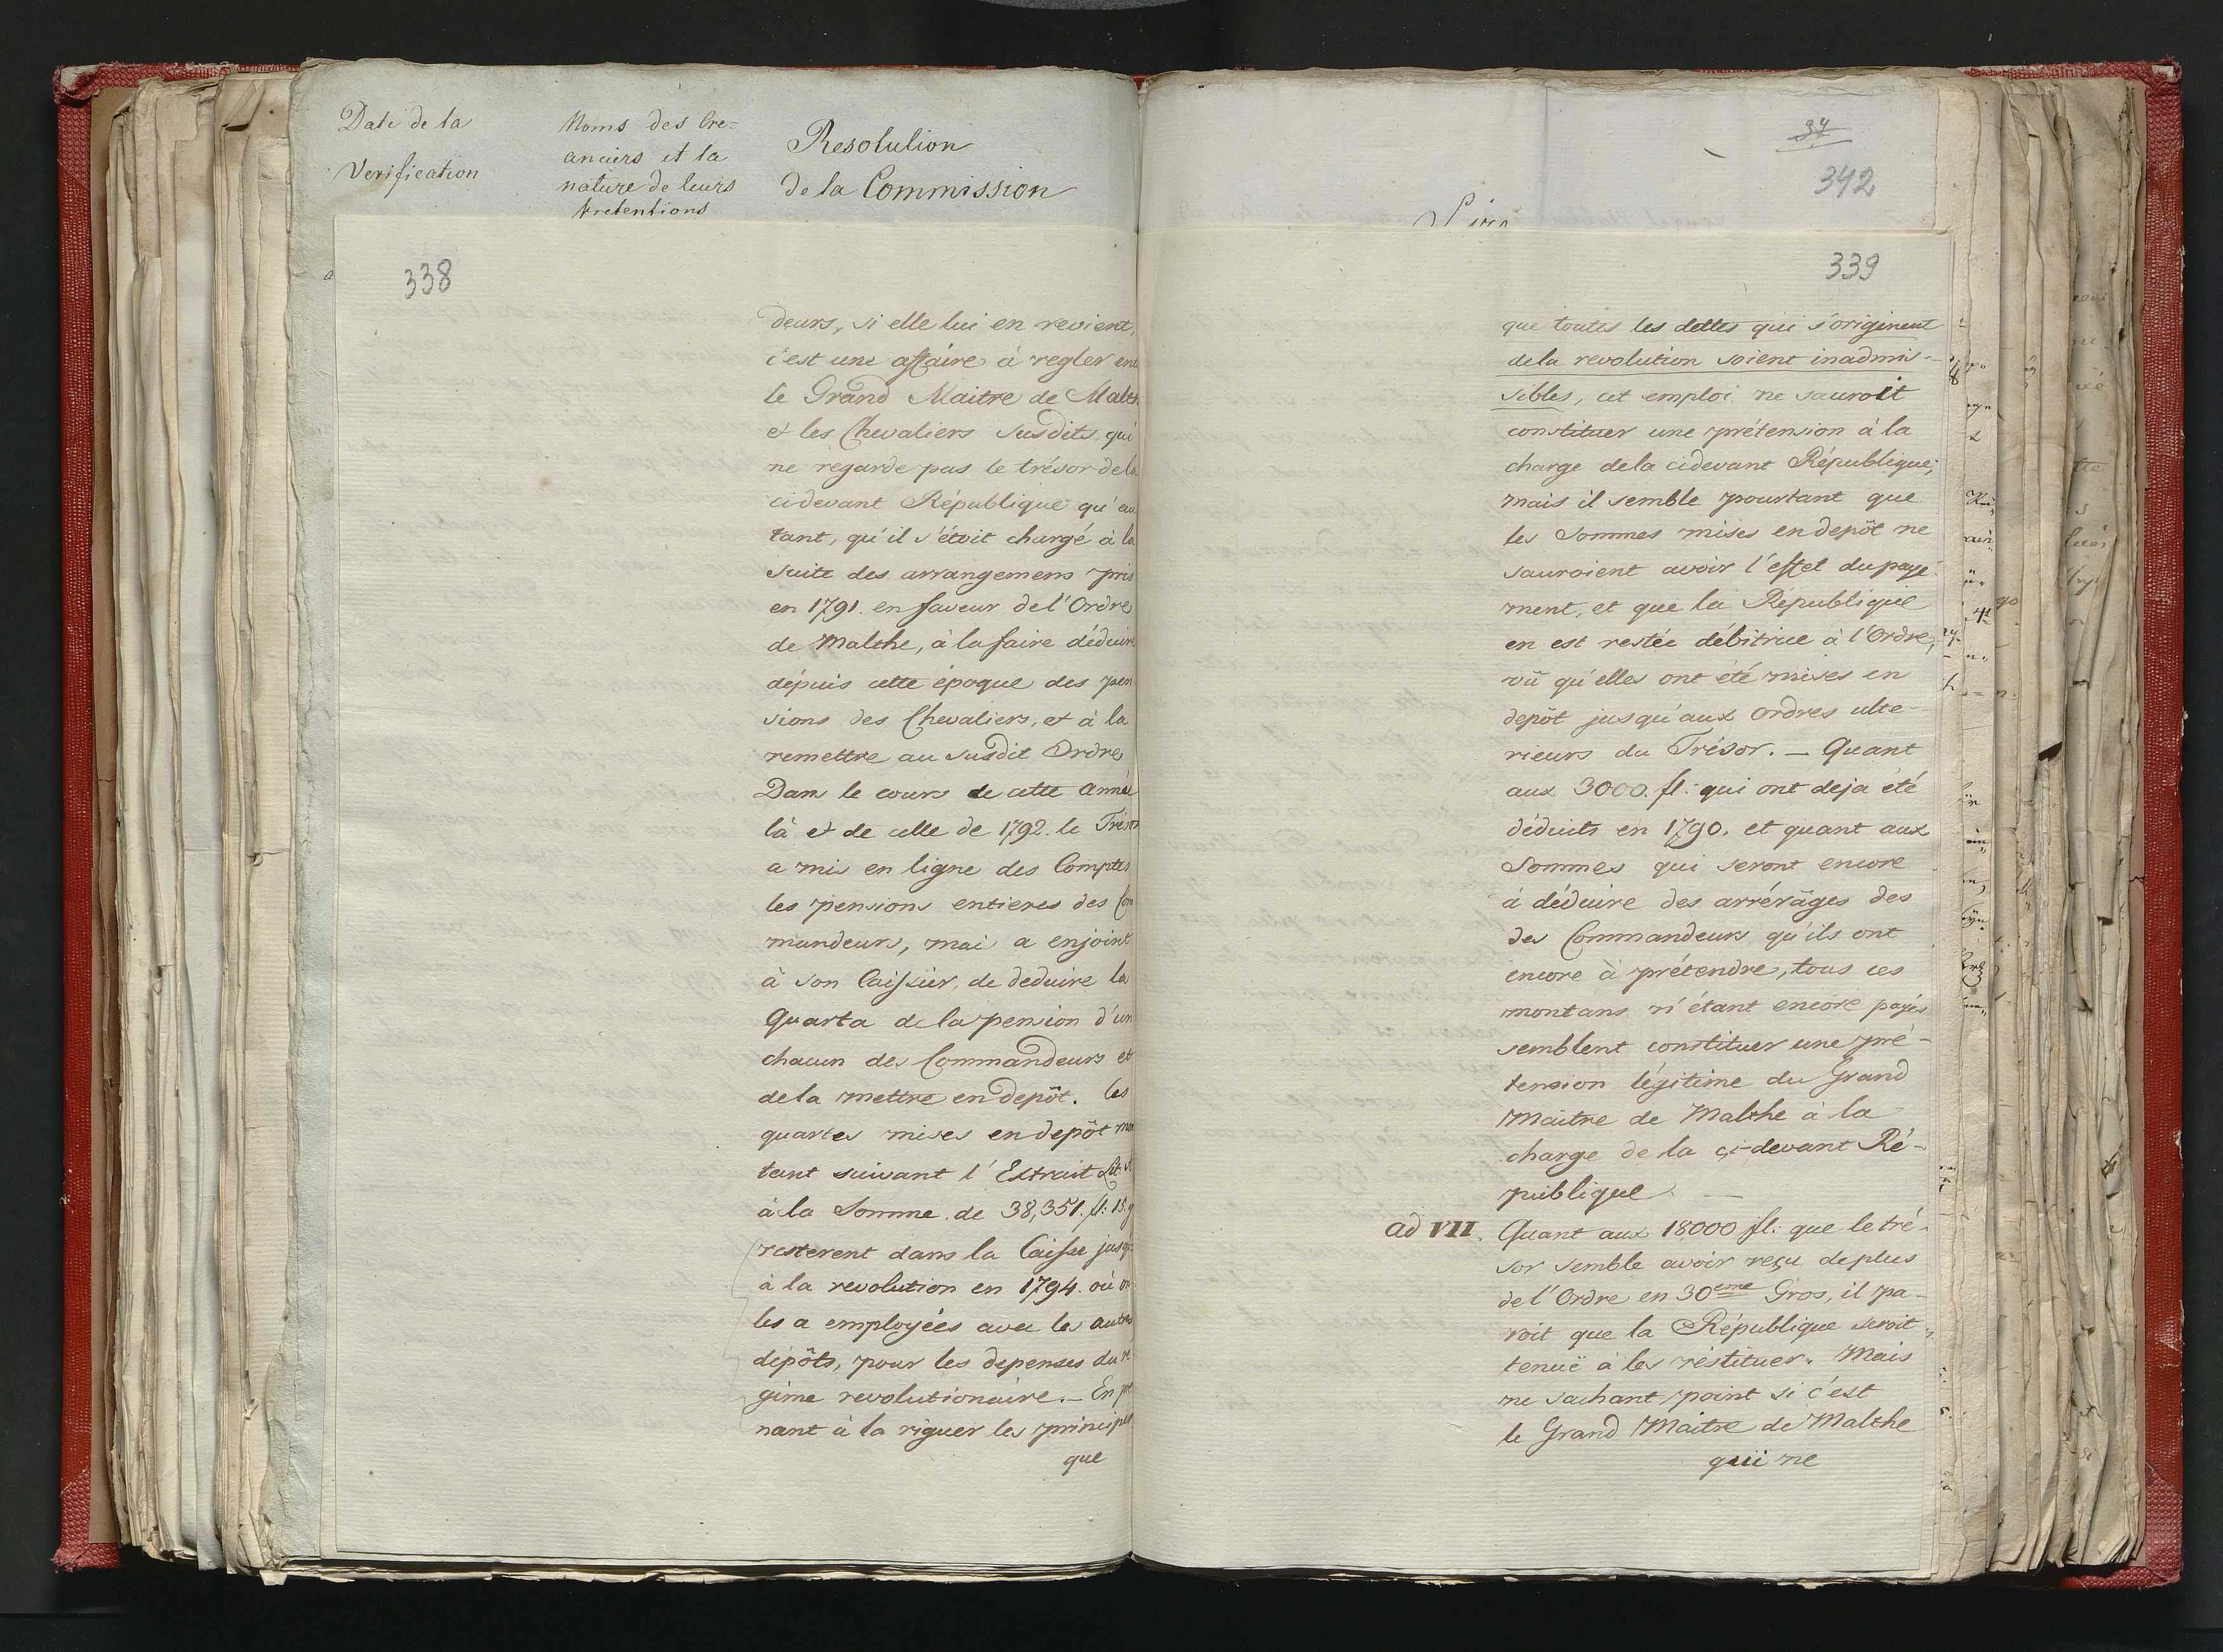 Date de la
Verification
Noms des Cre=
anciers et la
nature de leurs
pretentions
Resolution
de la Commission
338
deurs, si elle lui en revient,
c'est une affaire à regler en
le Grand Maitre de Malth
et les Chevaliers susdits, qui
ne regarde pas le trésor de la
cidevant République qu'au
tant, qu'il s'étoit chargé à la
suite des arrangemens pris
en 1791. en faveur de l'Ordre
de Malthe, à la faire déduire
dépuis cette époque des pen
sions des Chevaliers, et à la
remettre au susdit Ordre
Dans le cours de cette année
là et de celle de 1792. le Trésor
a mis en ligne des Comptes
les pensions entieres des Com
mandeurs, mai a enjoint
à son Caissier, de deduire la
Quarta de la pension d'un
chacun des Commandeurs et
de la mettre en depôt. Ces
quartes mises en depôt mon
tant suivant l'Extrait Lit. A
à la Somme de 38,351. fl: 15. g
resterent dans la Caisse jusqu
à la revolution en 1794. où on
les a employées avec les autres
dépôts, pour les depenses du ré
gime revolutionaire. — En pre
nant à la riguer les principes
que
34
342
Sire
339
que toutes les dettes qui s'originent
de la revolution soient inadmis-
sibles, cet emploi ne sauroit
constituer une prétension à la
charge de la cidevant République;
mais il semble pourtant que
les Sommes mises en depôt ne
sauroient avoir l'effet du paye
ment, et que la République
en est restée débitrice à l'Ordre,
vû qu'elles ont été mises en
depôt jusqu'aux ordres ulte-
rieurs du Trésor. — Quant
aux 3000. fl: qui ont deja été
déduits en 1790. et quant aux
Sommes qui seront encore
à déduire des arrérages des
des Commandeurs qu'ils ont
encore à prétendre, tous ces
montans n'étant encore payés
semblent constituer une pré-
tension légitime du Grand
Maitre de Malthe à la
charge de la ci-devant Ré-
publique —
ad VII. Quant aux 18000 fl: que le tré-
sor semble avoir reçu de plus
de l'Ordre en 30eme Gros, il pa-
roit que la République seroit
tenuë à les réstituer. Mais
ne sachant point si c'est
le Grand Maitre de Malthe
qui ne